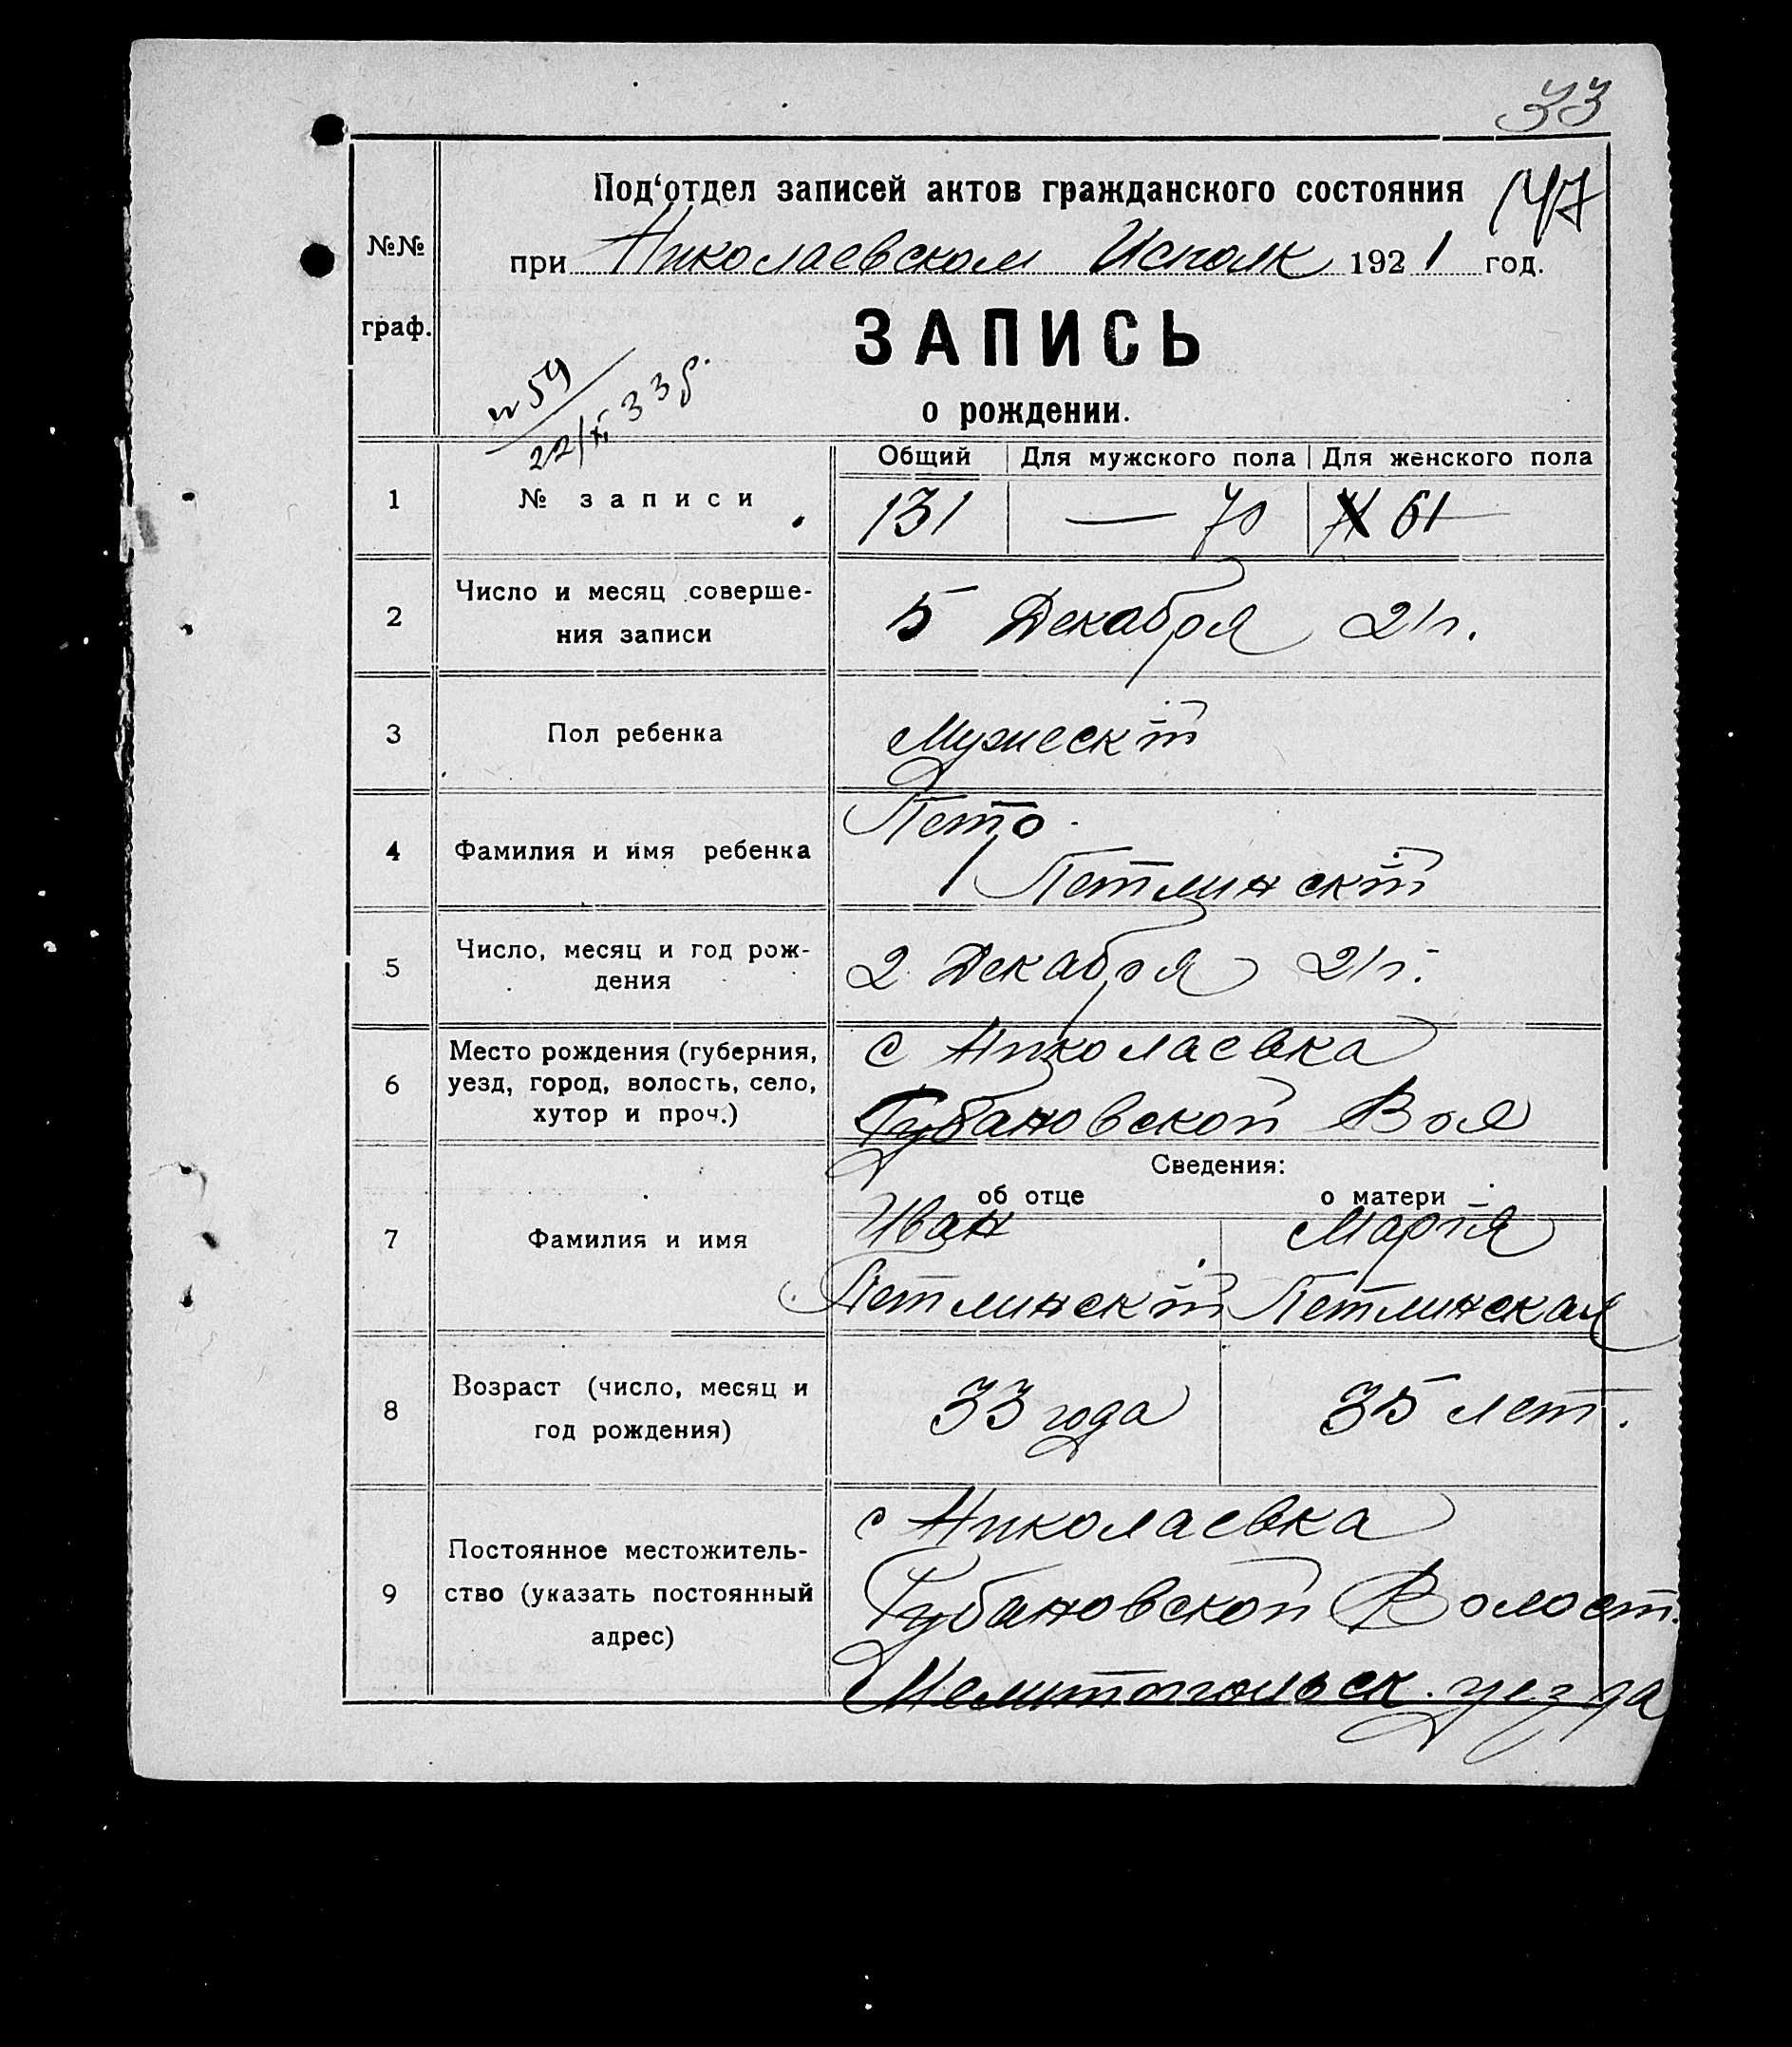 33
Под‘отдел записей актов гражданского состояния
147
при Николаевском Исполк 1921 год.
№№
граф.
ЗАПИСЬ
о рождении.
№ 59
22/XI 33 г.
Общий Для мужского пола Для женского пола
1 № записи 131 — 70 61
2 Число и месяц соверше-
ния записи
5 Декабря 21 г.
3 Пол ребенка Мужескій
4 Фамилия и имя ребенка
Петр
Петлинскій
5 Число, месяц и год рож-
дения
2 Декабря 21 г.
6 Место рождения (губерния,
уезд, город, волость, село,
хутор и проч.)
с Николаевка
Губановской Вол
Сведения:
об отце о матери
7 Фамилия и имя
Иван Марія
Петлинскій Петлинская
8 Возраст (число, месяц и
год рождения)
33 года 35 лет.
9 Постоянное местожитель-
ство (указать постоянный
адрес)
с Николаевка
Губановской Волост.
Мелитопольск. уезда